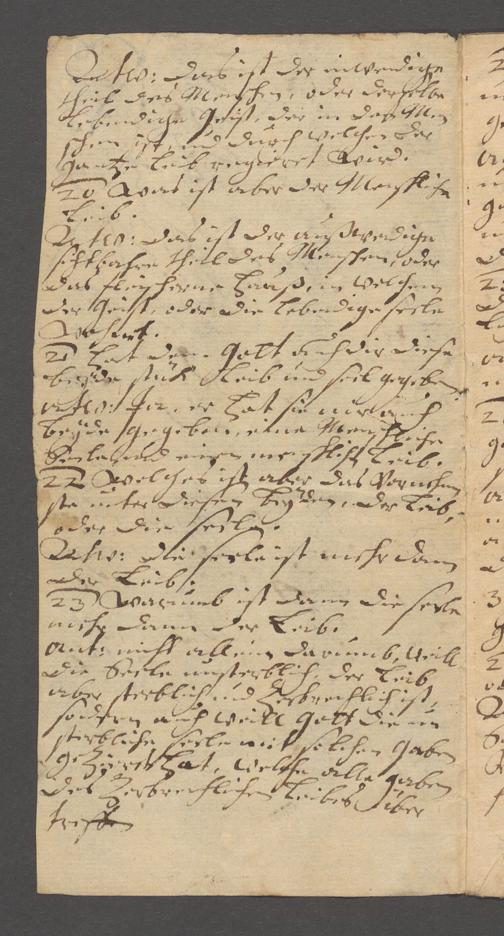 Antw: Das ist der inwendige
theil des Menschen, oder derselbe
lebendige Geist, der in dem Men
schen ist, und durch welchen der
gantze leib regieret wird.
20 Was ist aber der Menschliche
Leib.
Antw: Das ist der außwendige
sichtbahre theil des Menschen, oder
das fleischerne Hauß, in welchem
der Geist, oder die lebendige seele
Wohnet.
21 Hat denn Gott auch dir diese
beyde stück Leib und seel gegeben
antw: Ja, er hat sie mir auch
beyde gegeben, eine Menschliche
Seele und einen menschlichen Leib.
22 Welches ist aber das Vornehm
ste unter diesen beyden, der Leib,
oder die seele.
Antw: die seele ist mehr dann
der Leib.
23 Warumb ist dann die seele
mehr dann der Leib.
Ant: nicht allein darumb, weill
die Seele unsterblich, der Leib
aber sterblich und Zerbrechlich ist,
sondern auch weill Gott die un
sterbliche seele mit solchen Gaben
gezieret hat, welche alle gaben
des Zerbrechlichen Leibes über
treffen